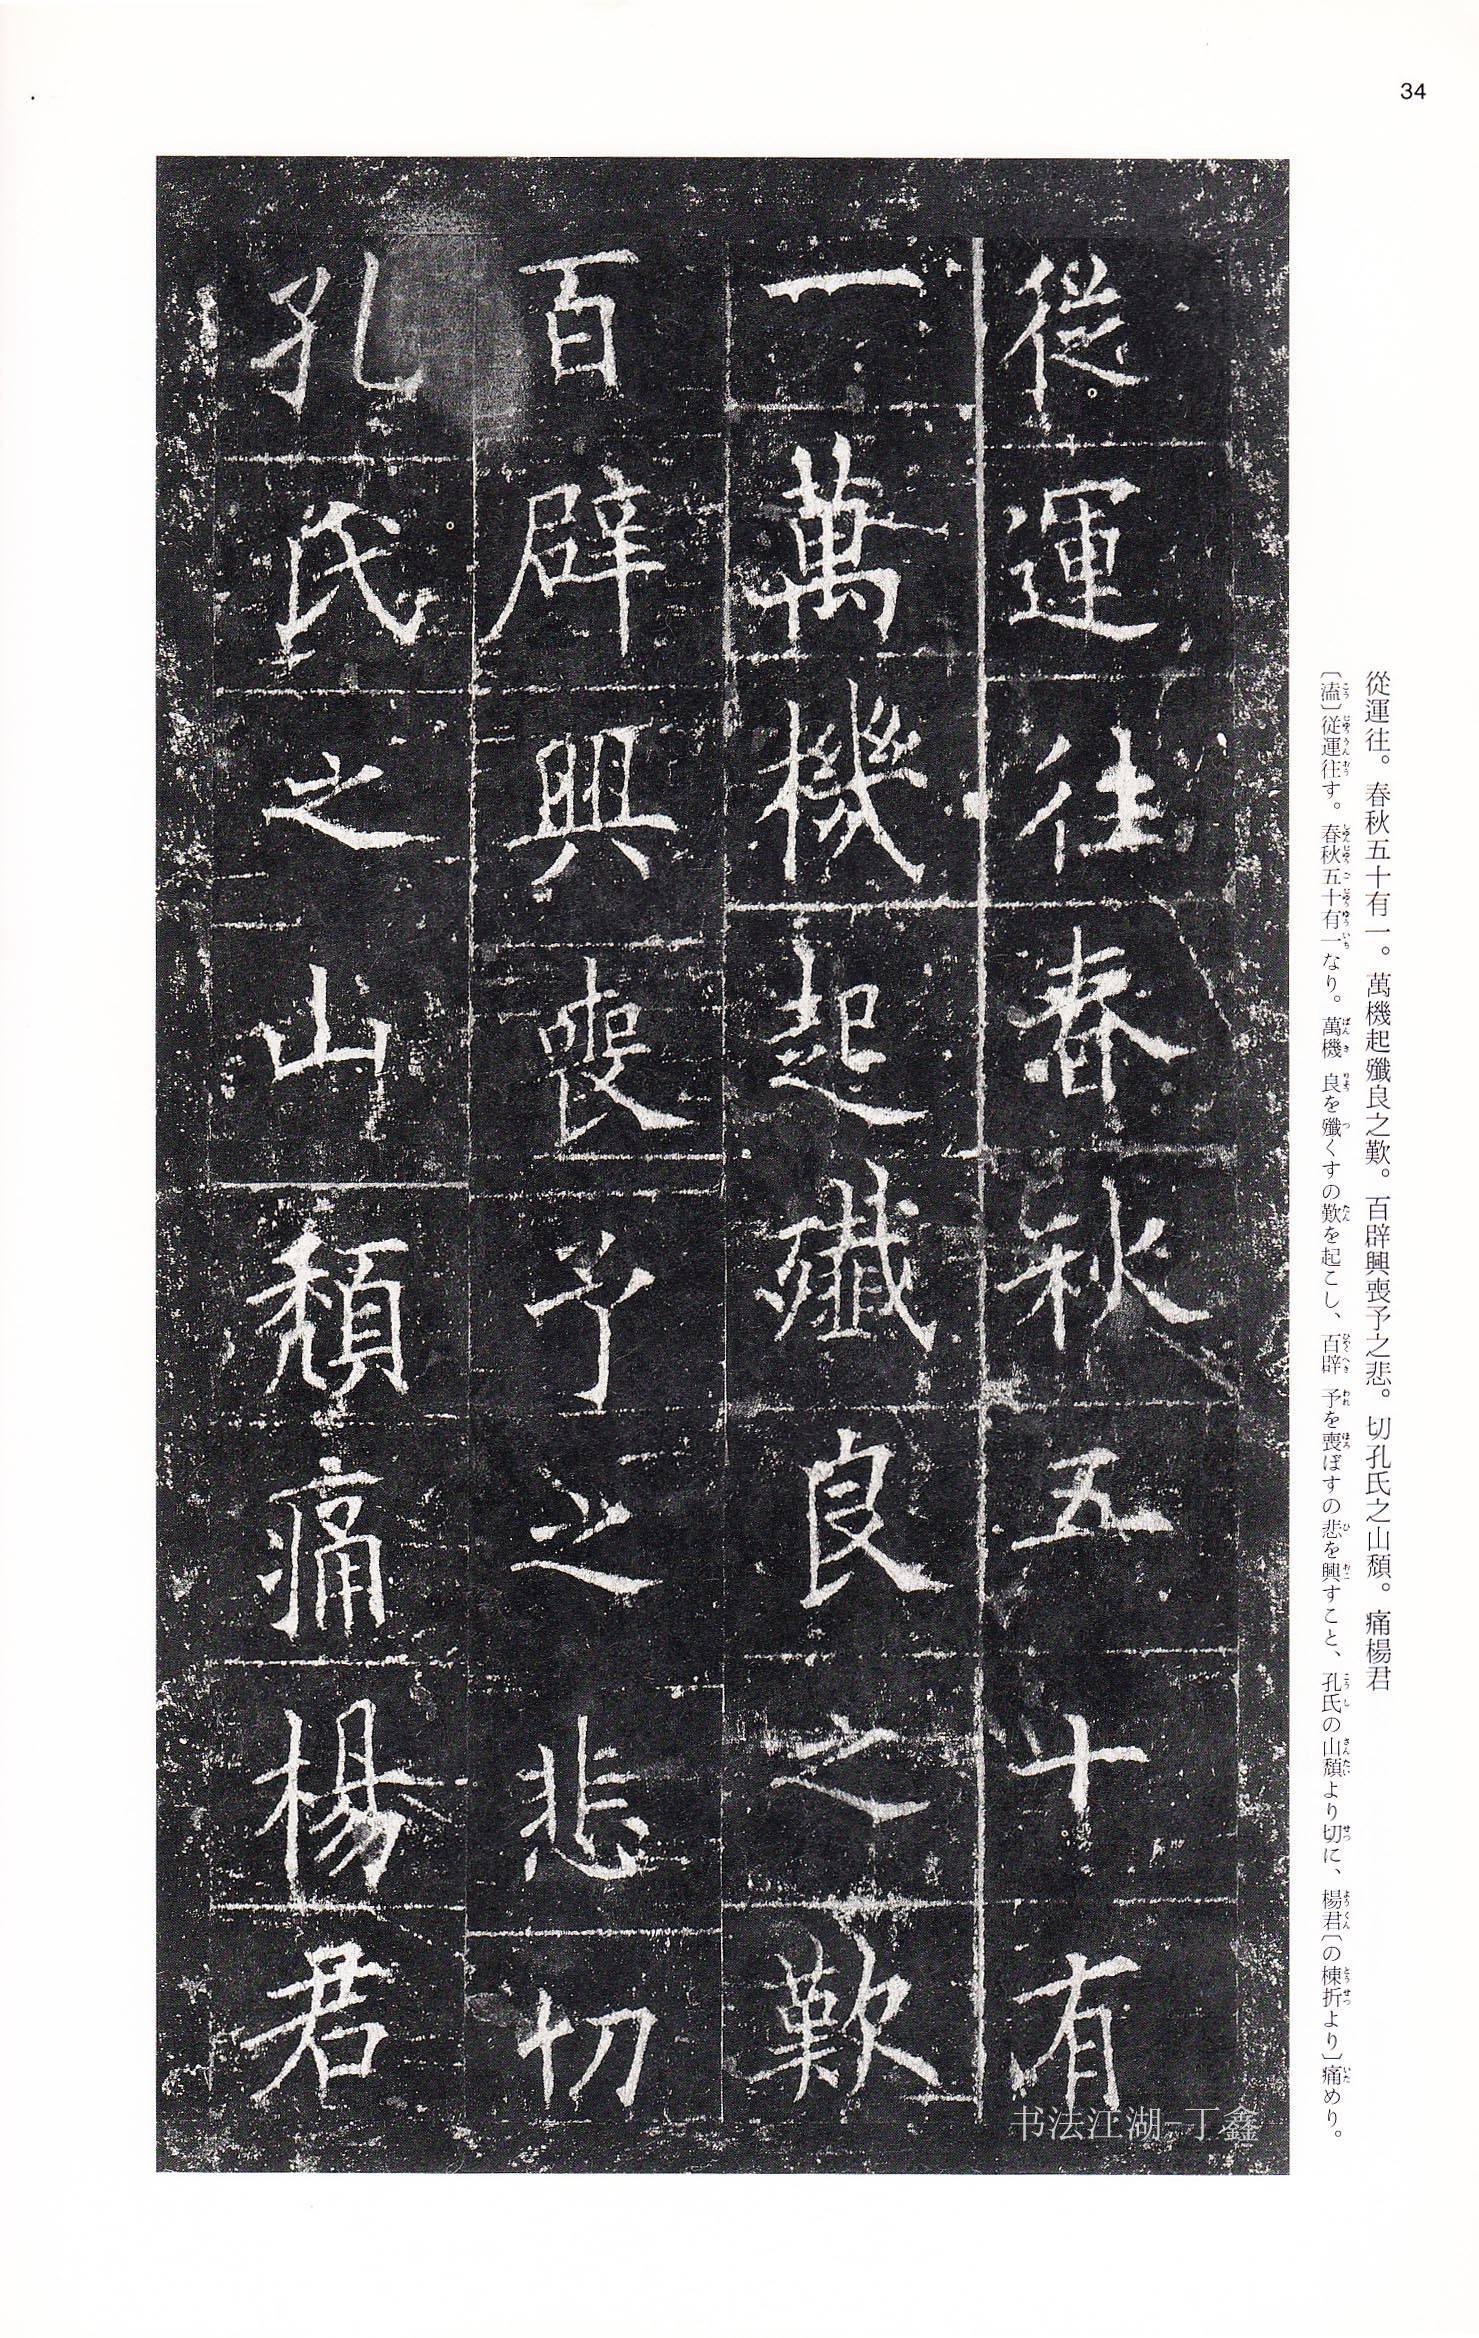 34
從運往。春秋五十有一。萬機起殲良之歎。百辟興喪予之悲。切孔氏之山頽。痛楊君
〔溘〕従運往す。春秋五十有一なり。萬機 良を殲くすの歎を起こし、百辟 予を喪ぼすの悲を興すこと、孔氏の山頽より切に、楊君〔の棟折より〕痛めり。
從運往春秋五十有
一萬機起殲良之歎
百辟興喪予之悲切
孔氏之山頽痛楊君
书法江湖-丁鑫